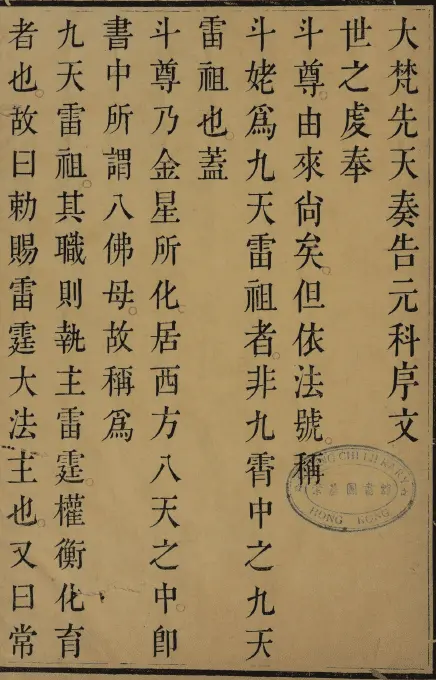 大梵先天奏告元科序文
世之虔奉
斗尊由來尙矣。但依法號。稱
斗姥爲九天雷祖者。非九霄中之九天
雷祖也。蓋
斗尊乃金星所化。居西方八天之中。卽
書中所謂八佛母。故稱爲
九天雷祖。其職則執主雷霆。權衡化育
者也。故曰勅賜雷霆大法主也。又曰常
HONG KONG